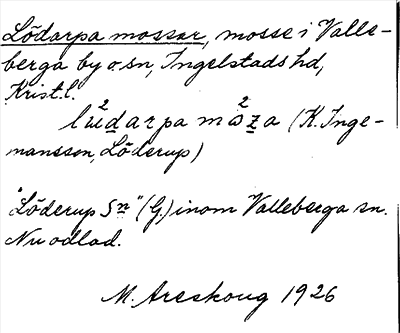 Lödarpa mossar, mosse i Valle-
berga by o sn, Ingelstads hd,
Krist.l.
lu²darpa mo²za (K. Inge-
mansson, Löderup)
"Löderup Sn" (G.) inom Valleberga sn.
Nu odlad.
M. Areskoug 1926